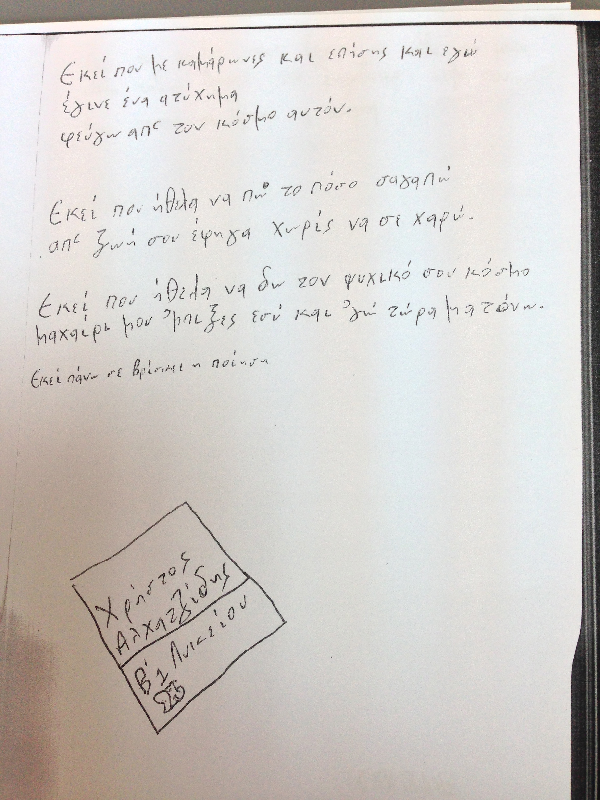 Εκεί που με καμάρωνες και επίσης και εγώ
έγινε ένα ατύχημα
φεύγω απ' τον κόσμο αυτόν.
Εκεί που ήθελα να πω το πόσο σαγαπώ
απ' ζωή σου έφηγα χωρίς να σε χαρώ.
Εκεί που ήθελα να δω τον ψυχικό σου κόσμο
μαχαίρι μου 'μπιξες εσύ και 'γώ τώρα ματώνω.
Εκεί πάνω σε βρίσκει η ποίηση
Χρήστος
Αλχατζίδης
Β'1 Λυκείου